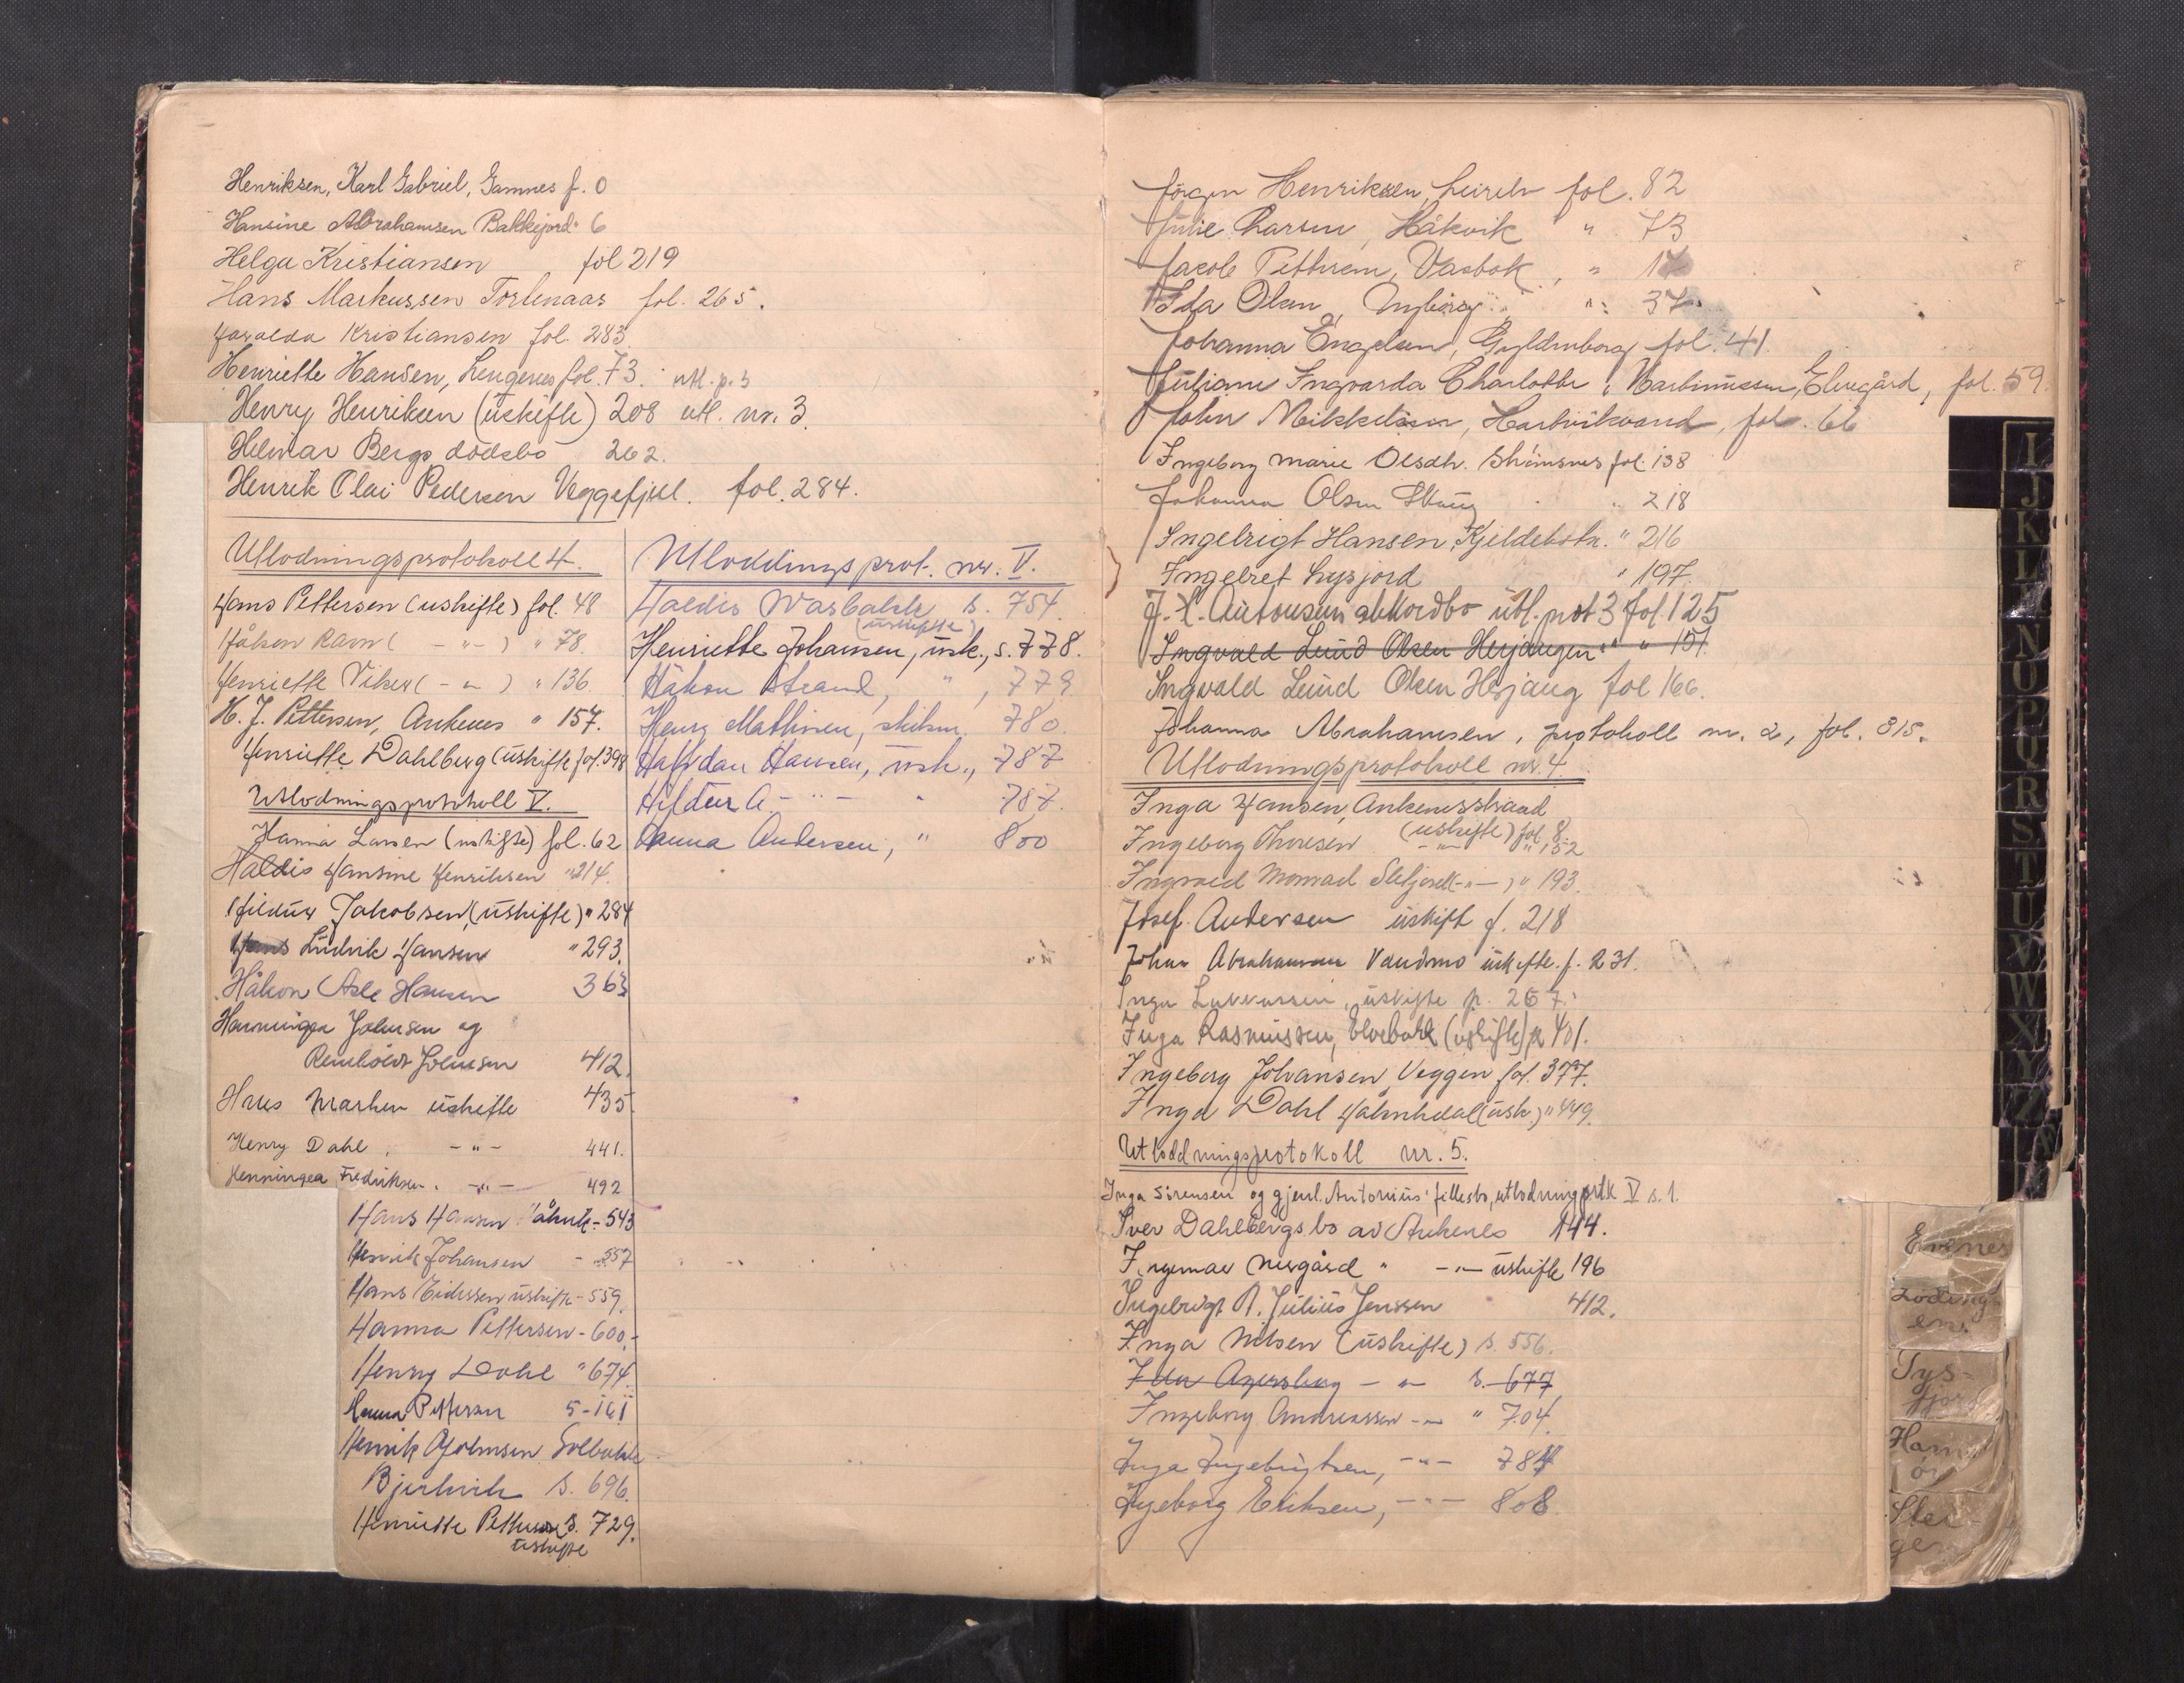 Henriksen, Karl Gabriel, Gamnes f. 0
Hansine Abrahamsen Bakkejord " 6
Helga Kristiansen fol 219
Hans Markussen fol. 265.
Haralda Kristiansen fol. 283
Henriette Hansen, Lengenes fol. 73. utl. p. 3
Henry Henriksen (uskifte) 208 utl. nr. 3.
Helmar Bergs dödsbo 262.
Henrik Olai Pedersen Veggefjell. fol. 284.
Utlodningsprotokoll 4.
Hans Pettersen (uskifte) fol. 48
Håkon Ravn ( - " - ) " 78.
Henriette Viker ( - " - ) " 136.
H. J. Pettersen, Ankenes " 157.
Henriette Dahlberg (uskifte fol. 398
Utlodningsprotokoll V.
Hanna Larsen (uskifte) fol. 62
Haldis Hansine Henriksen " 214.
Hildur Jakobsen, (uskifte) " 284
Hans Ludvik Hansen " 293.
Håkon Asle Hansen 363
Henningea Johnsen og
Johnsen 412.
Hans Marken uskifte 435
Henry Dahl, - " - 441.
Henningea Fredriksen. - " - 492
Hans Hansen - 543
Henrik Johansen - 557
Hans Eidissen uskifte - 559.
Hanna Pettersen - 600.-
Henry Dahl " 674.
Hanna Pettersen
Henrik Johnsen
Bjerkvik s. 696.
Henriette Pettersen s. 729.
uskifte
Utloddingsprot. nr. V.
Haldis Wasbakk s. 754.
(uskifte)
Henriette Johansen, usk., s. 778.
Håkon Strand, " , 779.
Henry Mathisen, 780.
Halvdan Hansen, usk., 787
Hildur A - " - " 787.
Hanna Andersen, " 800
Jörgen Henriksen, fol. 82
Julie Larsen, Håkvik " 73
Jacob Pettersen, Vasbak, "
Ida Olsen, Nyborg " 37
Johanna Engelsen, Gyldenborg fol. 41.
Juliane Ingvarda Charlotte Martinussen, Elvegård, fol. 59.
John Mikkelsen, Hartvikvand, fol. 66
Ingeborg Marie Olsdtr. fol. 138
Johanna Olsen " 218
Ingebrigt Hansen, Kjeldebotn. " 216
Ingebret Lysjord " 197.
J. L. Antonsens akkordbo utl. prot 3 fol. 125
Ingvald Lund Olsen Herjangen " " 151.
Ingvald Lund Olsen Herjang fol 166.
Johanna Abrahamsen, protokoll nr. 2, fol. 315.
Utlodningsprotokoll nr. 4.
Inga Hansen, Ankenesstrand
(uskifte) fol. 8.
Ingeborg Thoresen - " - " 152
Ingvald Monrad ( - " - ) " 193.
Josef Andersen uskift f. 218
Johan Abrahamsen Vandmo uskifte. f. 231.
Inga uskifte p. 267.
Inga Rasmussen, Elvebakk (uskifte) p 401.
Ingeborg Johansen, Veggen fol. 377.
Inga Dahl (usk.) " 449.
Utloddningsprotokoll nr. 5.
Inga Sörensen og gjenl. Antonius' fellesbo, utlodningprtk V s. 1.
Iver Dahlbergs bo av Ankenes 144.
Ingemar Nergård " - " - uskifte 196
Ingebrigt A. Julius Jenssen 412.
Inga Nilsen (uskifte) s. 556.
Ida - " s. 677
Ingeborg Andreassen - " - " 704.
Inga Ingebrigtsen, - " - 784
Ingeborg Eriksen, - " - 808
I
J
K
L
N
O
P
Q
R
S
T
U
V
W
X
Y
Z
Evenes
Löding-
en.
Tys-
fjord
Ham
ör
Stei-
gen